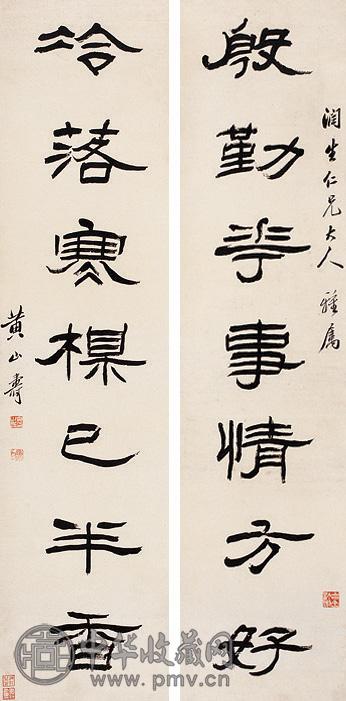 殷勤華事情方好
潤生仁兄大人 雅属
冷落寒楳已半香
黄山壽
中华收藏网
www.pmv.cn